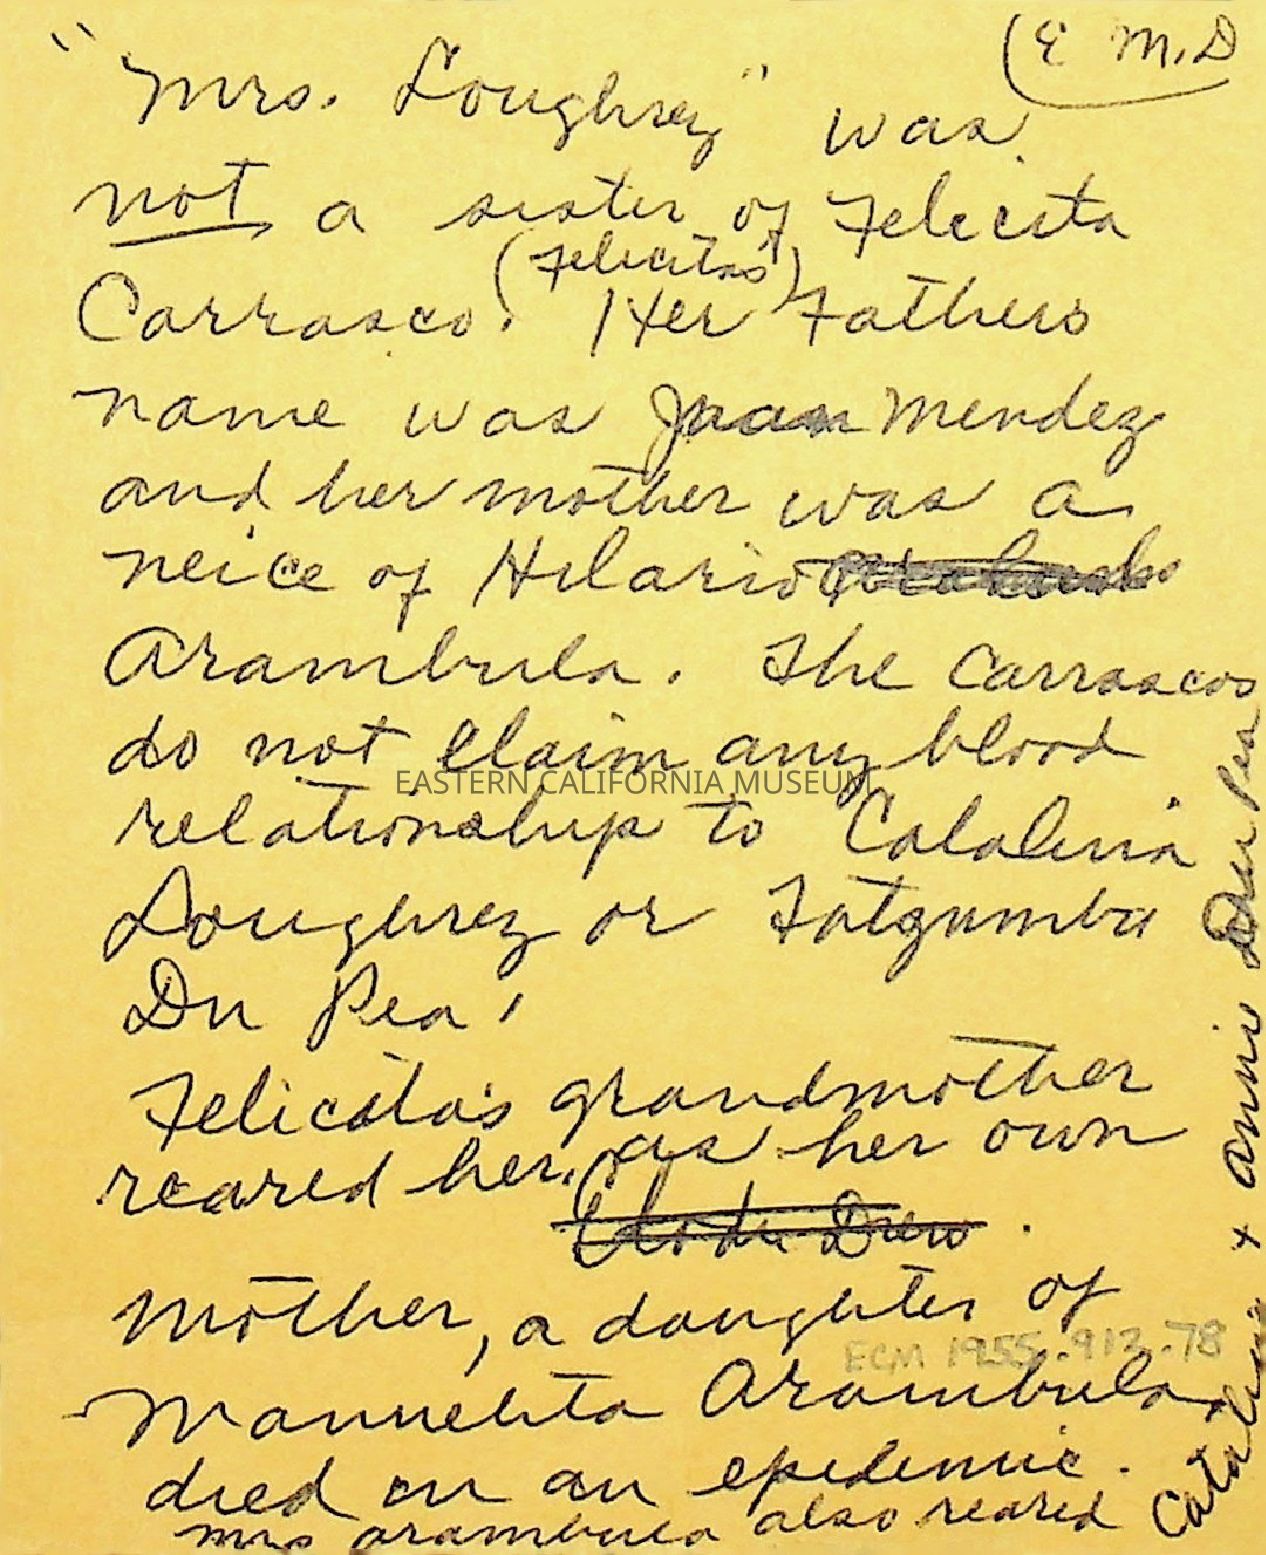 (E M.D
"Mrs. Loughrey" was
not a sister of Felecita
(Felicitas)
Carrasco. Her Fathers
name was Juan Mendez
and her mother was a
neice of Hilario
Arambula. The Carrascos
do not claim any blood
EASTERN CALIFORNIA MUSEUM
relationship to Catalina
Loughrey or Fatgumba
Du Pea,
Felicita's grandmother
reared her, as her own
Drew.
Mother, a daughter of
ECM 1955.912.78
Manuelita Arambula,
died in an epidemic.
Mrs Arambula also reared
Catalina + Annie Du Pea